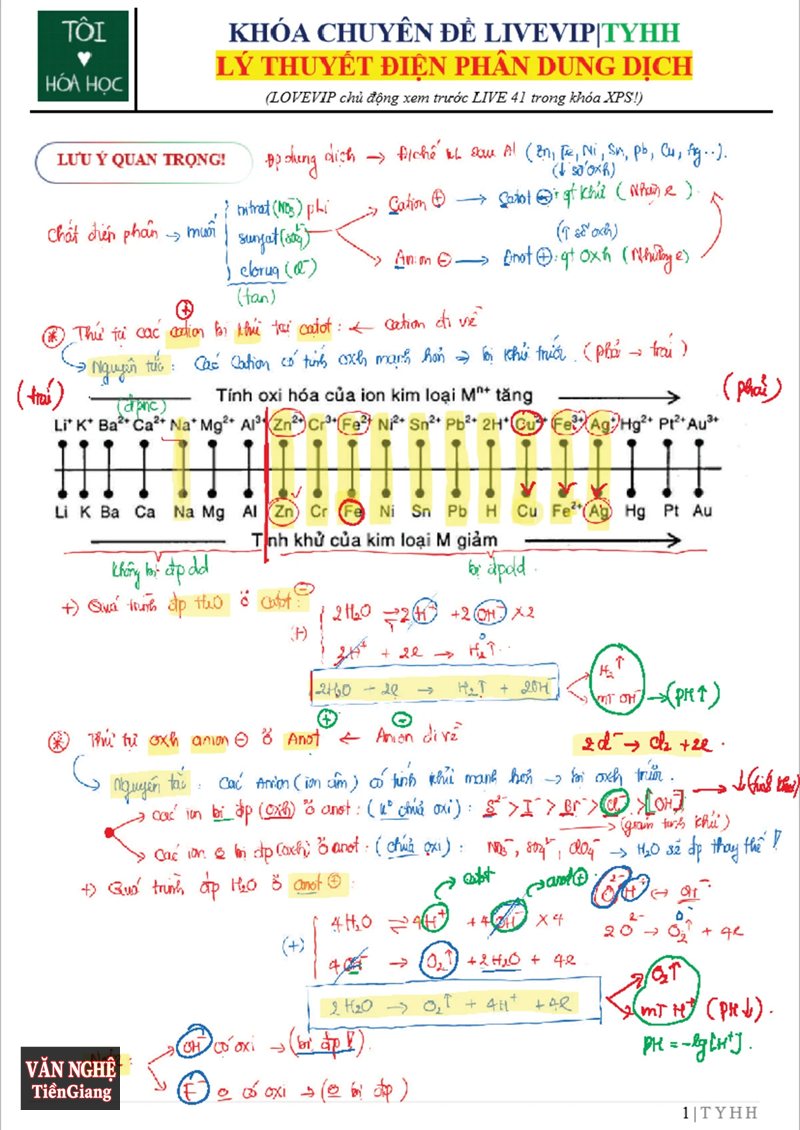 TÔI
♥
HÓA HỌC
KHÓA CHUYÊN ĐỀ LIVEVIP|TYHH
LÝ THUYẾT ĐIỆN PHÂN DUNG DỊCH
(LOVEVIP chủ động xem trước LIVE 41 trong khóa XPS!)
LƯU Ý QUAN TRỌNG!
Đp dung dịch → Đ/chế KL sau Al (Zn, Fe, Ni, Sn, Pb, Cu, Ag...).
(↓ số oxh)
nitrat (NO₃⁻)
Cation ⊕ → Catot ⊖: qt khử (Nhận e).
Chất điện phân → muối
sunfat (SO₄²⁻)
(↑ số oxh)
clorua (Cl⁻)
Anion ⊖ → Anot ⊕: qt oxh (Nhường e)
(tan)
⊕
* Thứ tự các cation bị khử tại catot: ← cation đi về
Nguyên tắc: Các Cation có tính oxh mạnh hơn → bị khử trước. (phải → trái)
(trái)
Tính oxi hóa của ion kim loại Mⁿ⁺ tăng
(phải)
(đpnc)
Li⁺ K⁺ Ba²⁺ Ca²⁺ Na⁺ Mg²⁺ Al³⁺ Zn²⁺ Cr³⁺ Fe²⁺ Ni²⁺ Sn²⁺ Pb²⁺ 2H⁺ Cu²⁺ Fe³⁺ Ag⁺ Hg²⁺ Pt²⁺ Au³⁺
Li K Ba Ca Na Mg Al Zn Cr Fe Ni Sn Pb H Cu Fe²⁺ Ag Hg Pt Au
Tính khử của kim loại M giảm
Không bị đp dd
bị đpdd.
+) Quá trình đp H₂O ở catot: ⊖
2H₂O ⇌ 2H⁺ + 2OH⁻ ×2
(+)
2H⁺ + 2e → H₂⁰↑
2H₂O - 2e → H₂↑ + 2OH⁻
H₂↑
mt OH⁻ → (pH↑)
⊕ ⊖
* Thứ tự oxh anion ⊖ ở Anot ← Anion đi về
2Cl⁻ → Cl₂ + 2e.
Nguyên tắc: Các Anion (ion âm) có tính khử mạnh hơn → bị oxh trước.
các ion bị đp (oxh) ở anot: (k⁰ chứa oxi): S²⁻ > I⁻ > Br⁻ > Cl⁻ > [OH⁻] → ↓(tính khử)
(giảm tính khử)
Các ion o bị đp (oxh) ở anot: (chứa oxi): NO₃⁻, SO₄²⁻, ClO₄⁻ → H₂O sẽ đp thay thế!
+) Quá trình đp H₂O ở anot ⊕:
catot
anot⊕
O²⁻H⁺ ↔ OH⁻
4H₂O ⇌ 4H⁺ + 4OH⁻ ×4
2O²⁻ → O₂⁰↑ + 4e
(+)
4OH⁻ → O₂↑ + 2H₂O + 4e
2H₂O → O₂↑ + 4H⁺ + 4e
O₂↑
mt H⁺ (pH↓)
pH = -lg[H⁺].
OH⁻ có oxi → (bị đp!).
F⁻ o có oxi → (o bị đp)
VĂN NGHỆ
TiềnGiang
1 | T Y H H